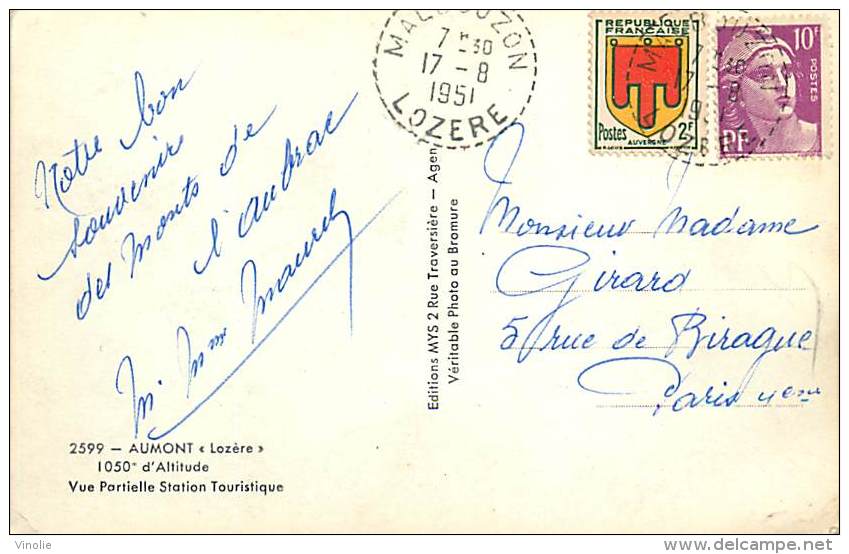 MALBOUZON
7H30
17 - 8
1951
LOZERE
REPUBLIQUE
FRANCAISE
Postes 2F
AUVERGNE
10F
POSTES
RF
Notre bon
souvenir
des monts de
l'aubrac
M. Mme
Monsieur Madame
Girard
5 rue de Birague
Paris 4eme
Editions MYS 2 Rue Traversière — Agen
Véritable Photo au Bromure
2599 — AUMONT « Lozère »
1050m d'Altitude
Vue Partielle Station Touristique
Vinolie
delcampe.net